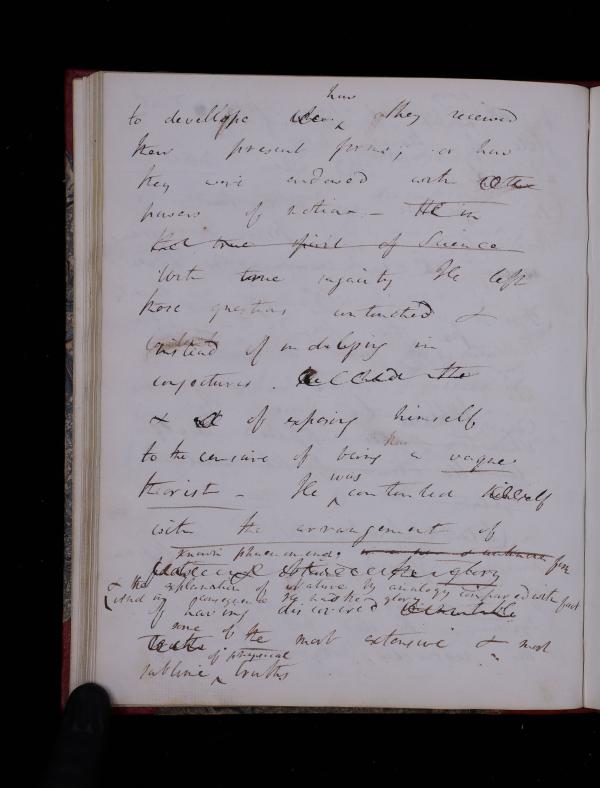 how
to develope they received
their present forms; or how
they were endowed with
powers of motion – He in
that true spirit of Science
With true sagacity He left
those questions untouched &
instead of indulging in
conjectures.
& of exposing himself
to the censure of being a vague
theorist – He was contented himself
with the arrangement of
known phaenomena;
& the explanation of nature by analogy compared with fact
And in consequence He had the glory
of having discovered
some of the most extensive & most
of physical
sublime truths